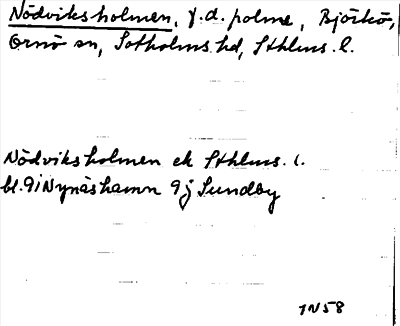 Nödviksholmen, f.d. holme, Björkö,
Ornö sn, Sotholms hd, Sthlms. l.
Nödviksholmen ek Sthlms. l.
bl. 9i Nynäshamn 9j Sundby
1N58